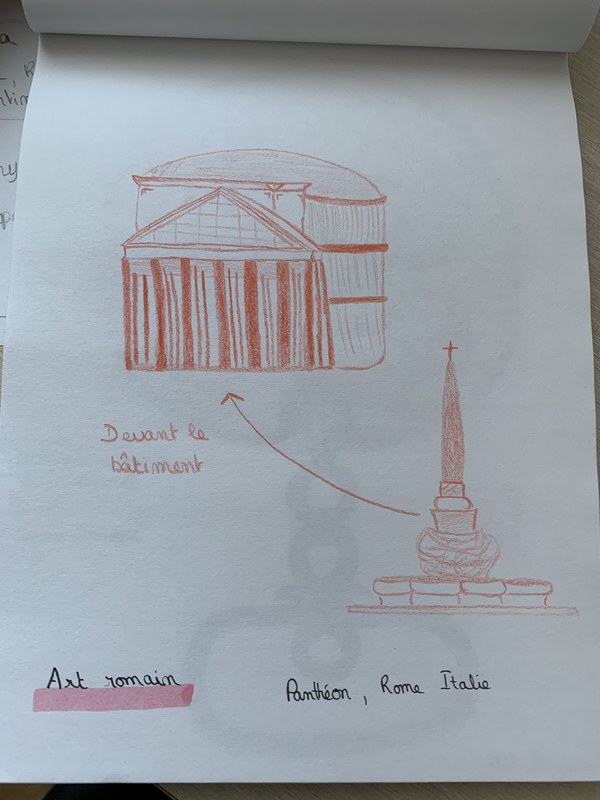 Devant le
bâtiment
Art romain
Panthéon, Rome Italie